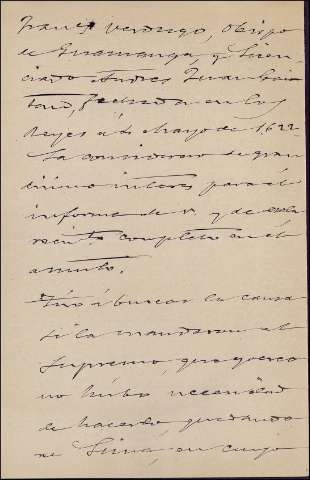 Franco Verdugo, Obispo
de Guamanga, y Licen-
ciado Andres Juan Gai-
tan, fechada en los
Reyes a 6 Mayo de 1622.
La considero de gran
disimo interes para el
informe de V. y de
completo en el
asunto.
Fui á buscar la causa
si la mandaron al
Supremo, pero
no hubo necesidad
de hacerlo, quedando
se Lima, en cuyo